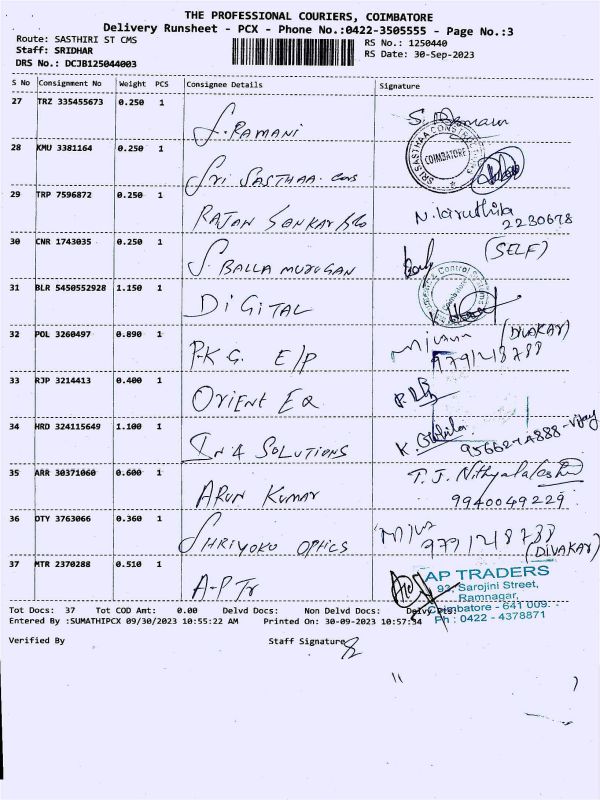 THE PROFESSIONAL COURIERS, COIMBATORE
Delivery Runsheet - PCX - Phone No.:0422-3505555 - Page No.:3
Route: SASTHIRI ST CMS
RS No.: 1250440
Staff: SRIDHAR
RS Date: 30-Sep-2023
DRS No.: DCJB125044003
S No Consignment No Weight PCS Consignee Details Signature
27 TRZ 335455673 0.250 1 S. RAMANI
28 KMU 3381164 0.250 1 Sri SASTHAA. Cons
SRI SASTHAA CONSTRUCTIONS COIMBATORE
29 TRP 7596872 0.250 1 RAJAN SANKAR
2230678
30 CNR 1743035 0.250 1 S. BALLA MURUGAN (SELF)
31 BLR 5450552928 1.150 1 DIGITAL
Control Coimbatore
32 POL 3260497 0.890 1 P.K G. E/P (DIVAKAR)
9791218788
33 RJP 3214413 0.400 1 ORIENT EQ
34 HRD 324115649 1.100 1 IN 4 SOLUTIONS
- Vijay
35 ARR 30371060 0.600 1 ARUN KUMAR
9940049229
36 DTY 3763066 0.360 1 SHRIYOKU OPTICS
9791218788
(DIVAKAR)
37 MTR 2370288 0.510 1 A-P Tr
AP TRADERS
93, Sarojini Street,
Ramnagar,
Coimbatore - 641 009.
Ph : 0422 - 4378871
Tot Docs: 37 Tot COD Amt: 0.00 Delvd Docs: Non Delvd Docs:
Entered By :SUMATHIPCX 09/30/2023 10:55:22 AM Printed On: 30-09-2023 10:57:34
Verified By Staff Signature